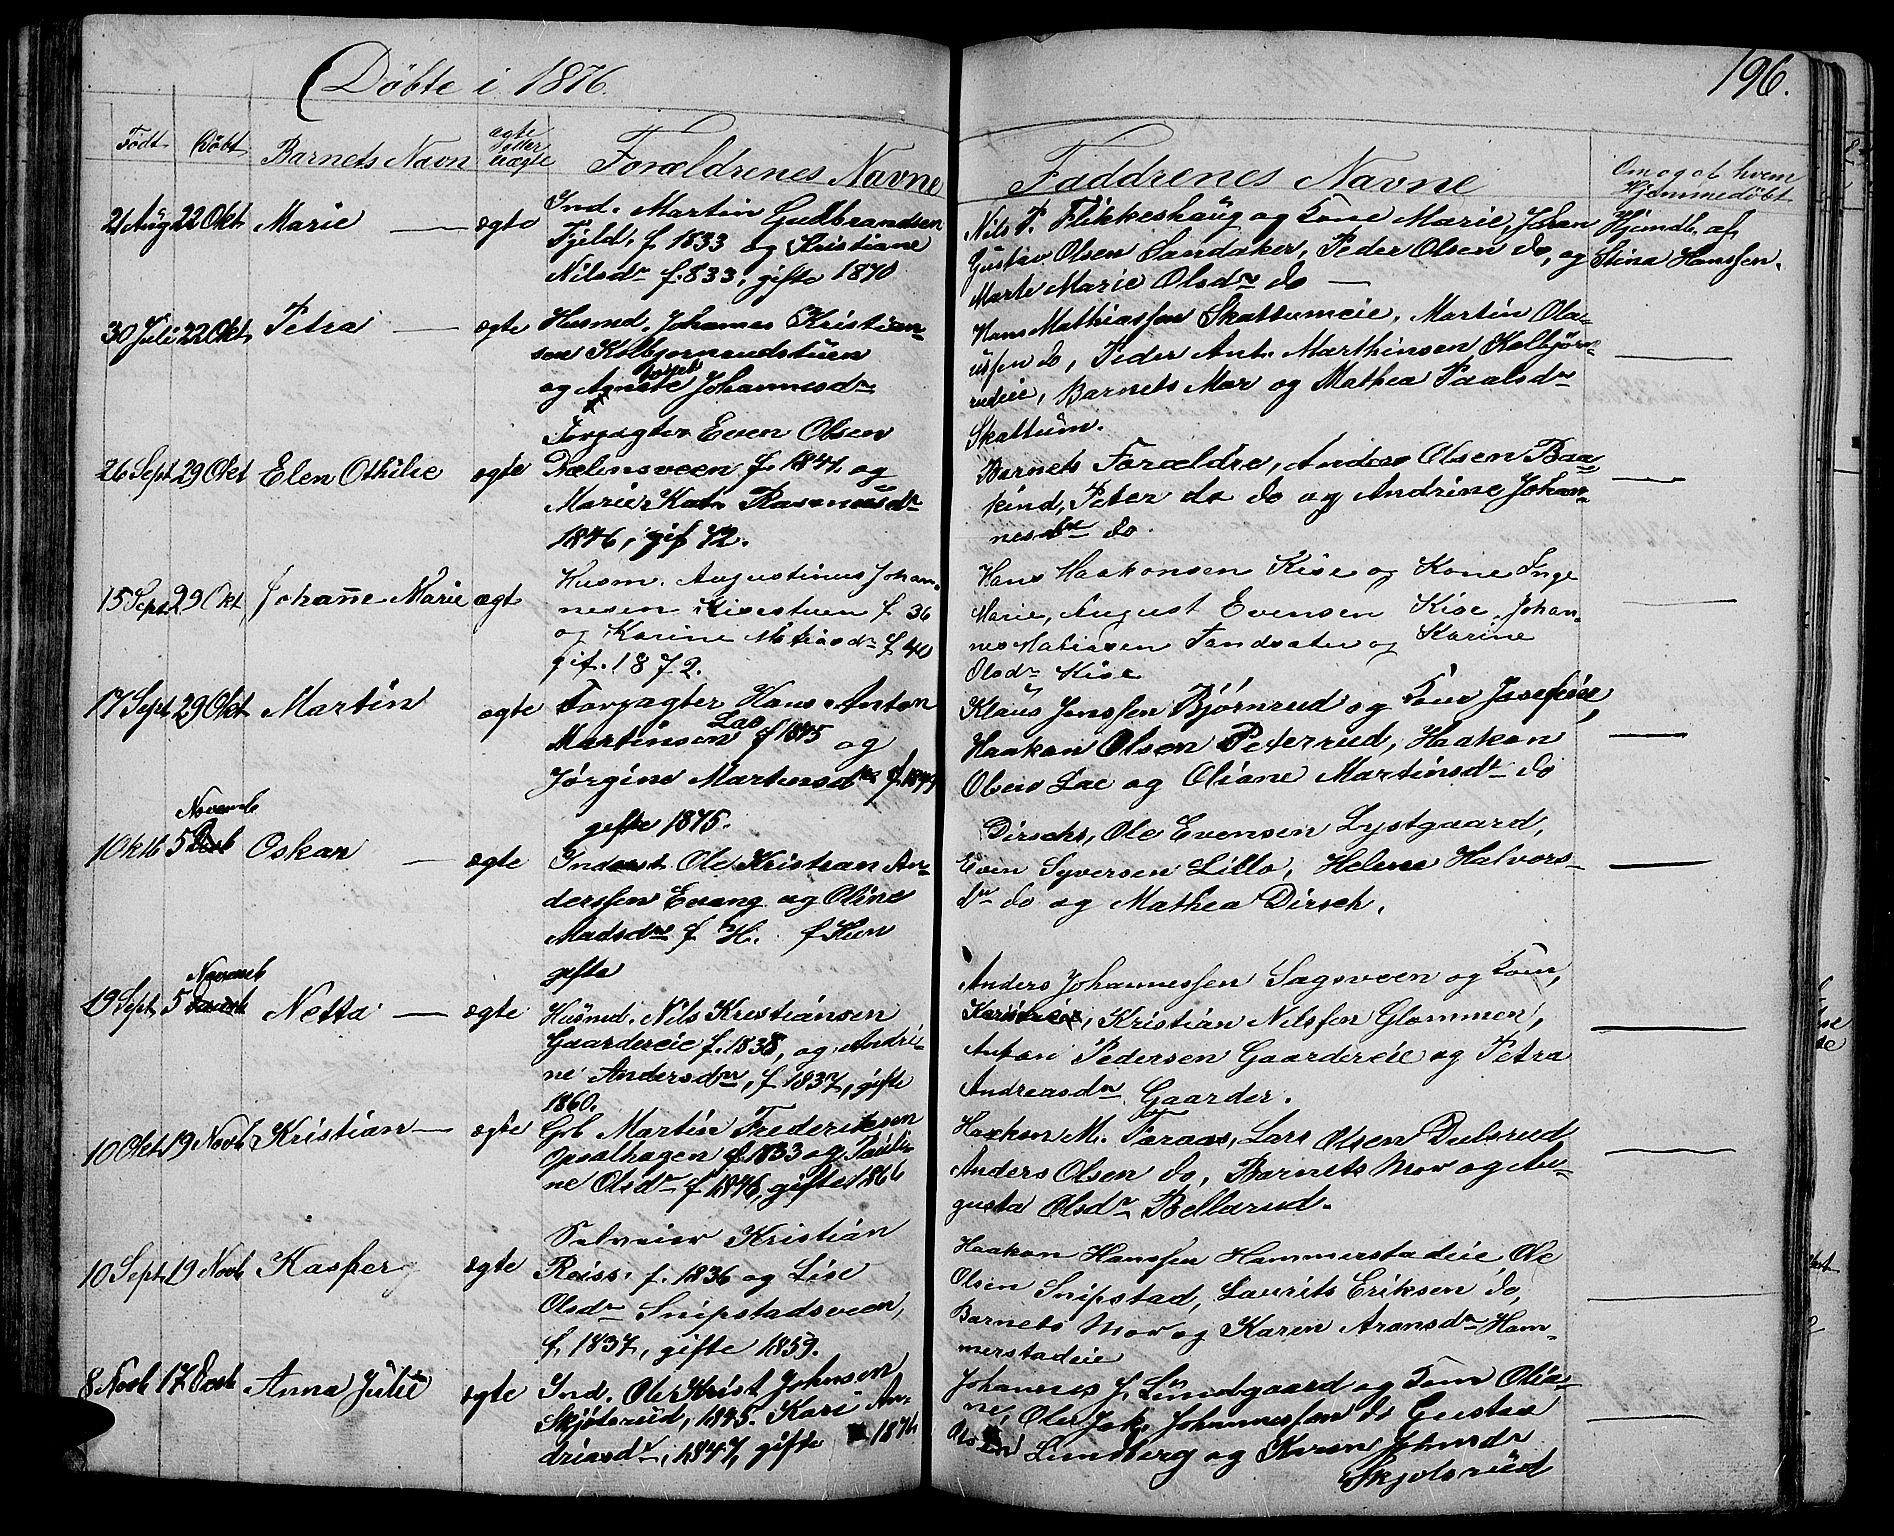 Døbte i 1876.
196.
Født Døbt Barnets Navn ægte eller uægte Forældrenes Navne Faddrenes Navne Om og af hvem Hjemmedøbt
21 Aug 22 Okt Marie — ægte
Ind. Martin Gudbrandsen
Fjeld, f. 1833 og Kristiane
Nilsdr f. 833, gifte 1870
Nils P. Flikkeshaug og Kone Marie, Johan
Gustav Olsen Sandaker, Peder Olsen do, og
Marte Marie Olsdr do —
Hjemdb. af
Stina Hanssen.
30 Juli 22 Okt Petra — ægte
Husmd. Johannes Kristian-
sen Kolbjørnrudstuen
og Agnete Johannesdr
Hans Mathiassen Skattumeie, Martin Ola-
ussen do, Peder Ant. Marthinsen Kolbjørn-
rudeie, Barnets Mor og Mathea Paalsdr
Skattum.
26 Sept 29 Okt Elen Othilie ægte
Forpagter Even Olsen
Dælinsveen f. 1847 og
Marie Kat. Rasmusdr
1846, gif 72.
Barnets Forældre, Anders Olsen Baa-
kind, Peter do do og Andrine Johan-
nesdr do.
15 Sept 29 Okt Johanne Marie ægt
Husm. Augustinus Johan-
nesen Kisestuen f 36
og Karine Matiasdr f 40
gif. 1872.
Hans Haakonsen Kise og Kone Inge
Marie, August Evensen Kise, Johan-
nes Matiasen Sandsater og Karine
Olsdr Kise
17 Sept 29 Okt Martin ægte
Forpagter Hans Anton
Martinsen Lae f 1845 og
Jørgine Martinsdr f. 1849
gifte 1875.
Klaus Jenssen Bjørnrud og Kone Josefine,
Haakon Olsen Peterrud, Haakon
Olsen Lae og Oliane Martinsdr do
1 Okt 5 Novemb Oskar — ægte
Inderst Ole Kristian An-
derssen Evang og Oline
Madsdr f H. f Kon
gifte
Dirschs, Ole Evensen Lystgaard,
Even Syversen Lillo, Helene Halvors-
dr do og Mathea Dirsch.
19 Sept 5 Novemb Netta — ægte
Husmd. Nils Kristiansen
Gaardereie f. 1838, og Andri-
ne Andersdtr, f 1837, gifte
1860.
Anders Johannessen Sagsveen og Kone,
Kristian Nilssen Glommen,
Anton Pedersen Gaardereie og Petra
Andreasdr Gaarder.
10 Okt 19 Novb Kristian — ægte
Gb. Martin Frederiksen
Opsalhagen f. 1833 og Pauli-
ne Olsdr f. 1846, gifte 1866
Haakon M. Foraas, Lars Olsen Dulsrud
Anders Olsen do, Barnets Mor og Au-
gusta Olsdr Bellerud.
10 Sept 19 Novb Kasper ægte
Selveier Kristian
Reiss. f. 1836 og Lise
Olsdr Snipstadsveen,
f. 1837, gifte 1859.
Haakon Hanssen Hammerstadeie, Ole
Olsen Snipstad, Laurits Eriksen do,
Barnets Mor og Karen Aronsdr Ham-
merstadeie
8 Novb 17 Decb Anna Julie ægte
Ind. Ole Krist. Johnsen
Skjølsrud, 1845. Kari An-
driasdr, 1847, gifte 1876
Johannes J. Lundgaard og Kone Olia-
ne, Ole Jak. Johannessen do Gustav
Olsen Lundberg og Karen Johnsdr
Skjølsrud